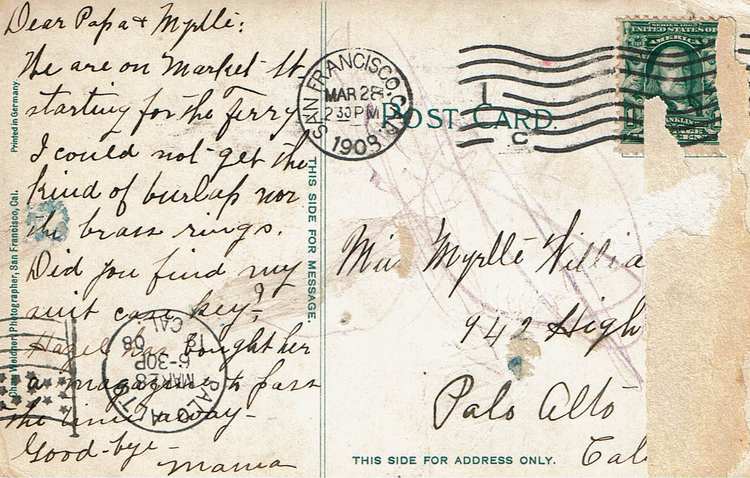 Dear Papa & Myrtle:
We are on Market St.
starting for the Ferry
I could not get the
kind of burlap nor
the brass rings.
Did you find my
suit case key?
Hazel has bought her
a magazine to pass
the time away-
Good-bye-
Mama
Printed in Germany.
Chas. Weidner, Photographer, San Francisco, Cal.
THIS SIDE FOR MESSAGE.
SAN FRANCISCO, CAL.
MAR 28
2 30 PM
1908
1
C
POST CARD.
SERIES 1902
UNITED STATES OF
AMERICA
Miss Myrtle Willia
942 High
Palo Alto
Cal
THIS SIDE FOR ADDRESS ONLY.
PALO ALTO
MAR 28
6-30P
08
CAL.